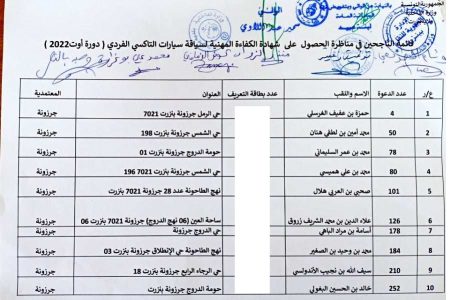 الجمهورية التونسية
قائمة الناجحين في مناظرة الحصول على شهادة الكفاءة المهنية لسياقة سيارات التاكسي الفردي ( دورة أوت2022 )
ع/ر عدد الدعوة الاسم واللقب عدد بطاقة التعريف العنوان المعتمدية
1 4 حمزة بن عفيف الغرسلي حي الرمل جرزونة بنزرت 7021 جرزونة
2 50 محمد أمين بن لطفي هنان حي الشمس جرزونة بنزرت 198 جرزونة
3 78 محمد بن عمر السليماني حومة الدروج جرزونة بنزرت 01 جرزونة
4 80 محمد بن علي هميسي حي الشمس جرزونة بنزرت 7021 196 جرزونة
5 101 صحبي بن العربي هلال نهج الطاحونة عدد 28 جرزونة 7021 بنزرت جرزونة
6 126 علاء الدين بن محمد الشريف زروق ساحة العين (06 نهج الدروج) جرزونة 7021 بنزرت 06 جرزونة
7 178 أسامة بن مراد الباهي حي الدروج جرزونة جرزونة
8 184 محمد بن وحيد بن الصغير نهج الطاحونة حي الإنطلاق جرزونة بنزرت 03 جرزونة
9 210 سيف الله بن نجيب الأندولسي حي الرجاء الرابع جرزونة بنزرت 18 جرزونة
10 252 خالد بن الحسين البغولي حومة الدروج جرزونة بنزرت جرزونة